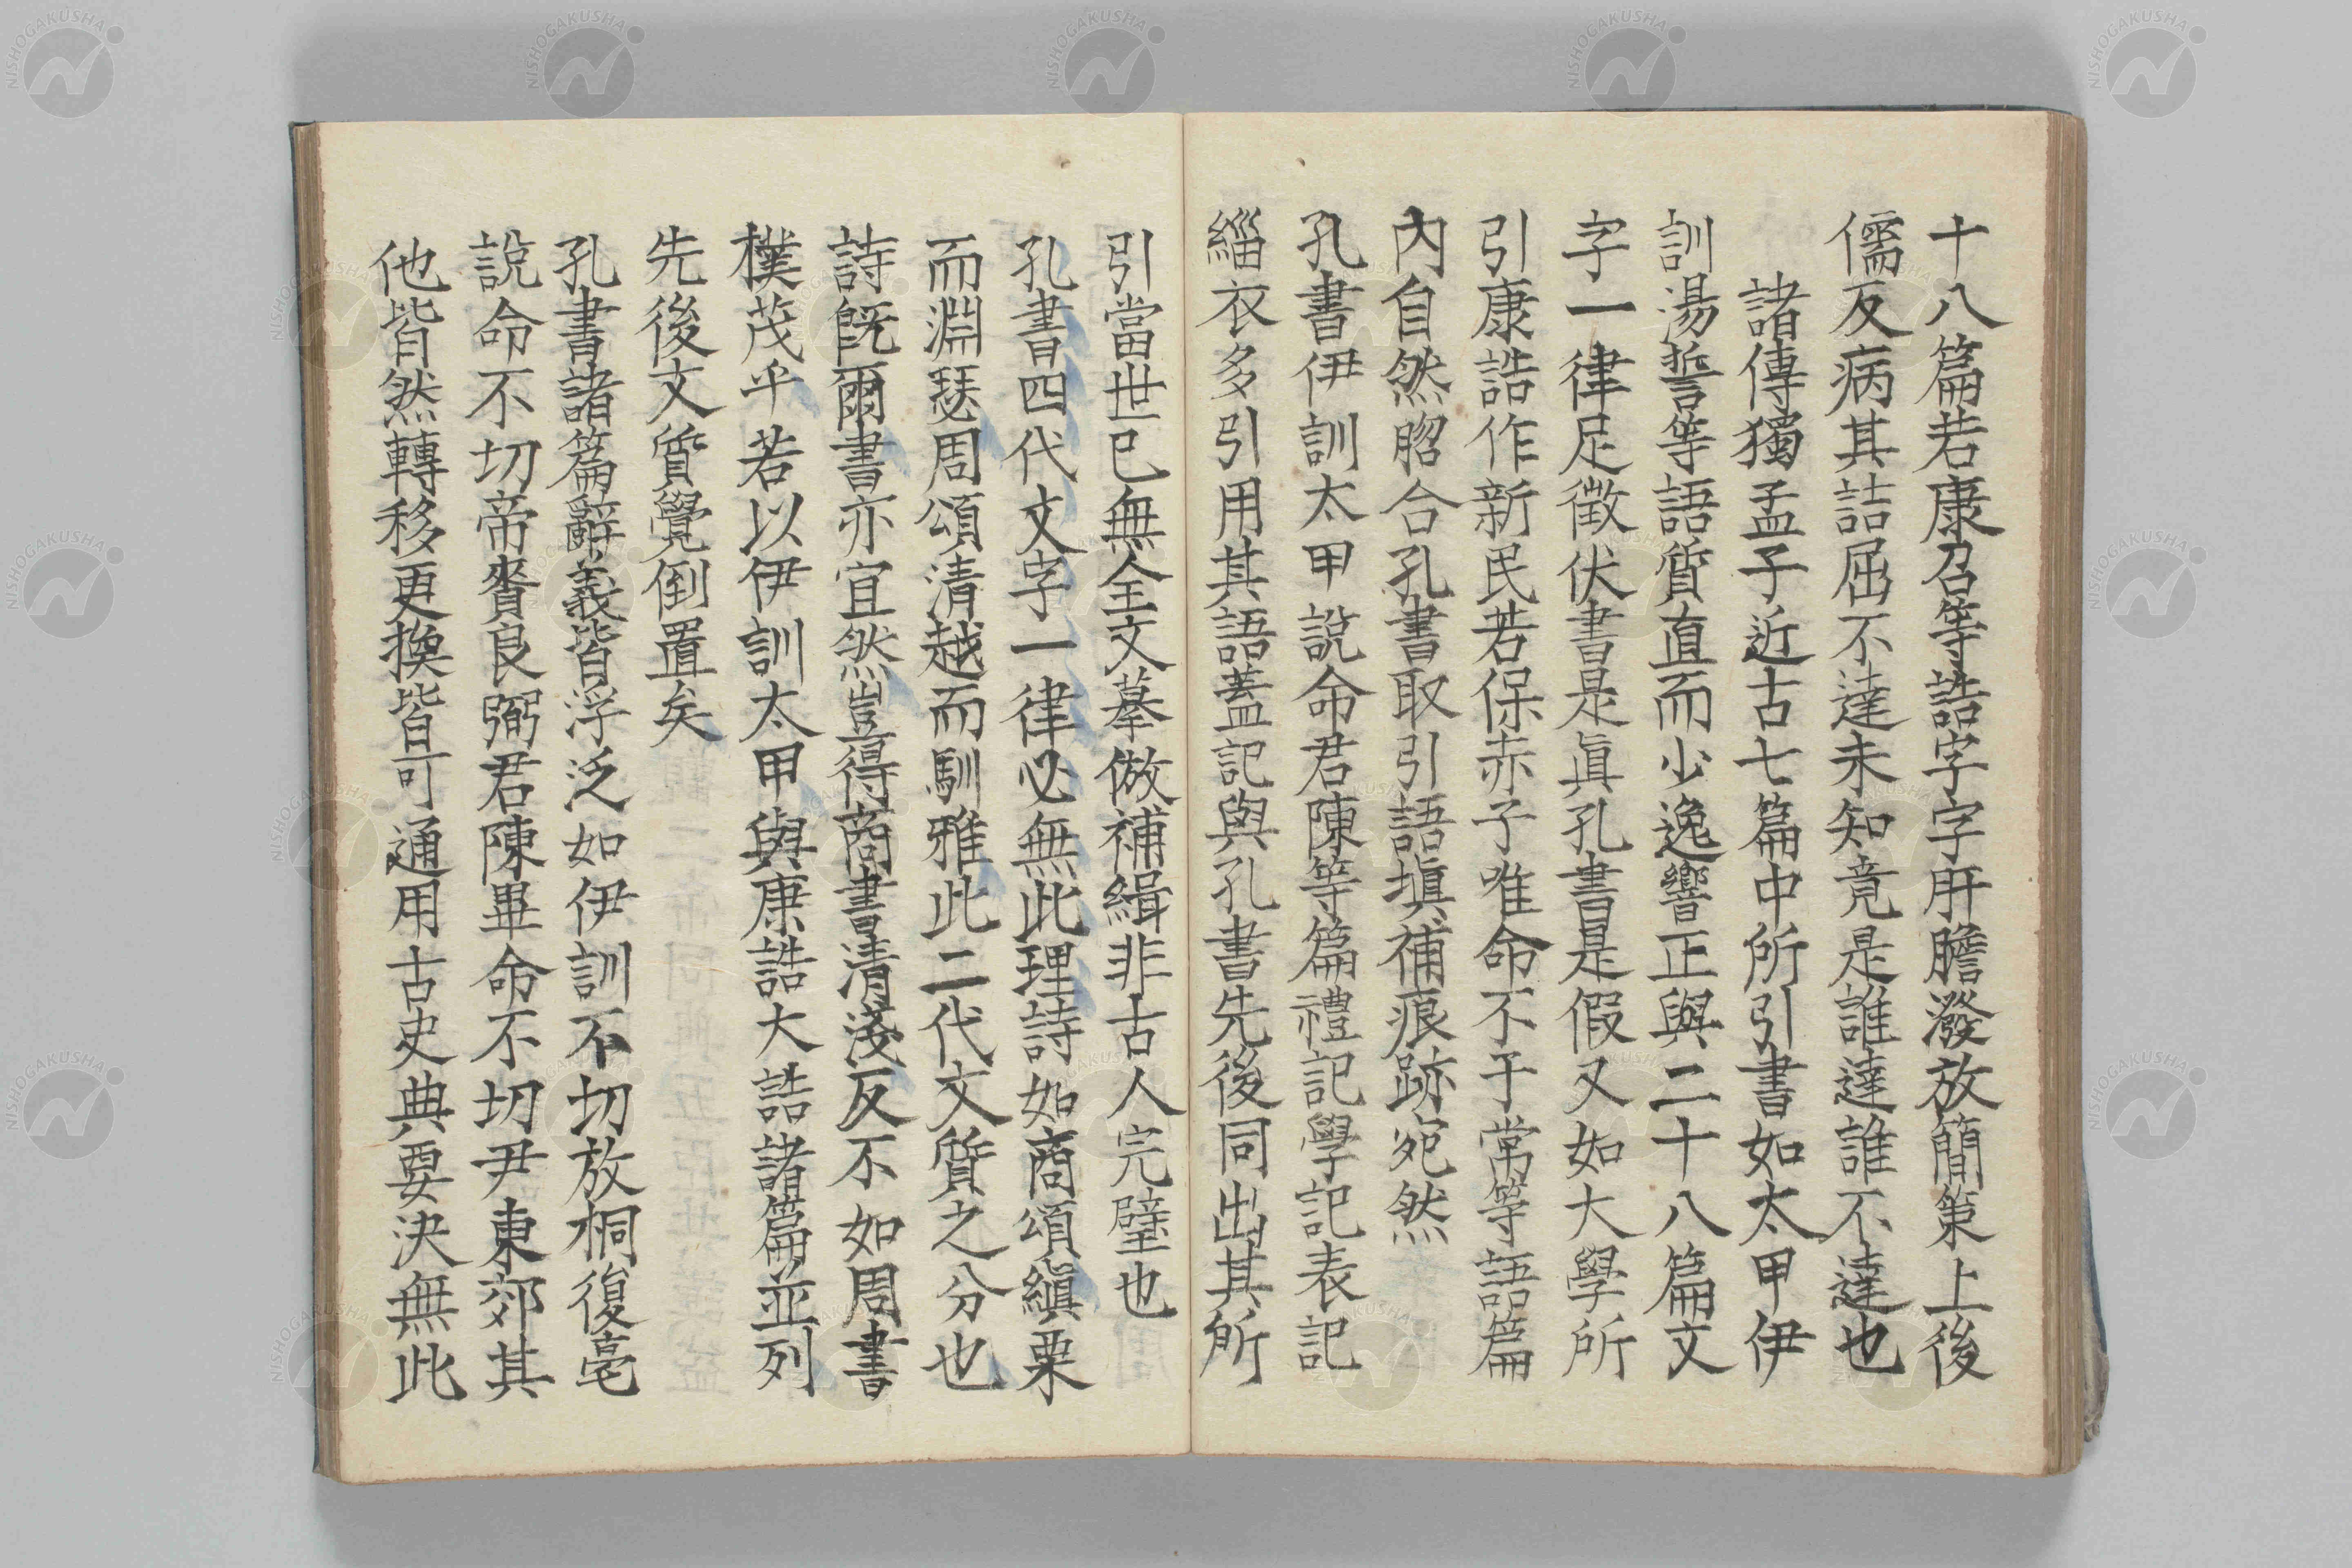 十八篇若康召等誥字字肝膽潑放簡策上後
儒反病其詰屈不達未知竟是誰達誰不達也
諸傳獨孟子近古七篇中所引書如太甲伊
訓湯誓等語質直而少逸響正與二十八篇文
字一律足徵伏書是眞孔書是假又如大學所
引康誥作新民若保赤子唯命不于常等語篇
內自然脗合孔書取引語塡補痕跡宛然
孔書伊訓太甲說命君陳等篇禮記學記表記
緇衣多引用其語蓋記與孔書先後同出其所
引當世已無全文摹倣補緝非古人完璧也
孔書四代文字一律必無此理詩如商頌縝栗
而淵瑟周頌清越而馴雅此二代文質之分也
詩旣爾書亦宜然豈得商書清淺反不如周書
樸茂乎若以伊訓太甲與康誥大誥諸篇並列
先後文質覺倒置矣
孔書諸篇辭義皆浮泛如伊訓不切放桐復亳
說命不切帝賚良弼君陳畢命不切尹東郊其
他皆然轉移更換皆可通用古史典要決無此
NISHOGAKUSHA